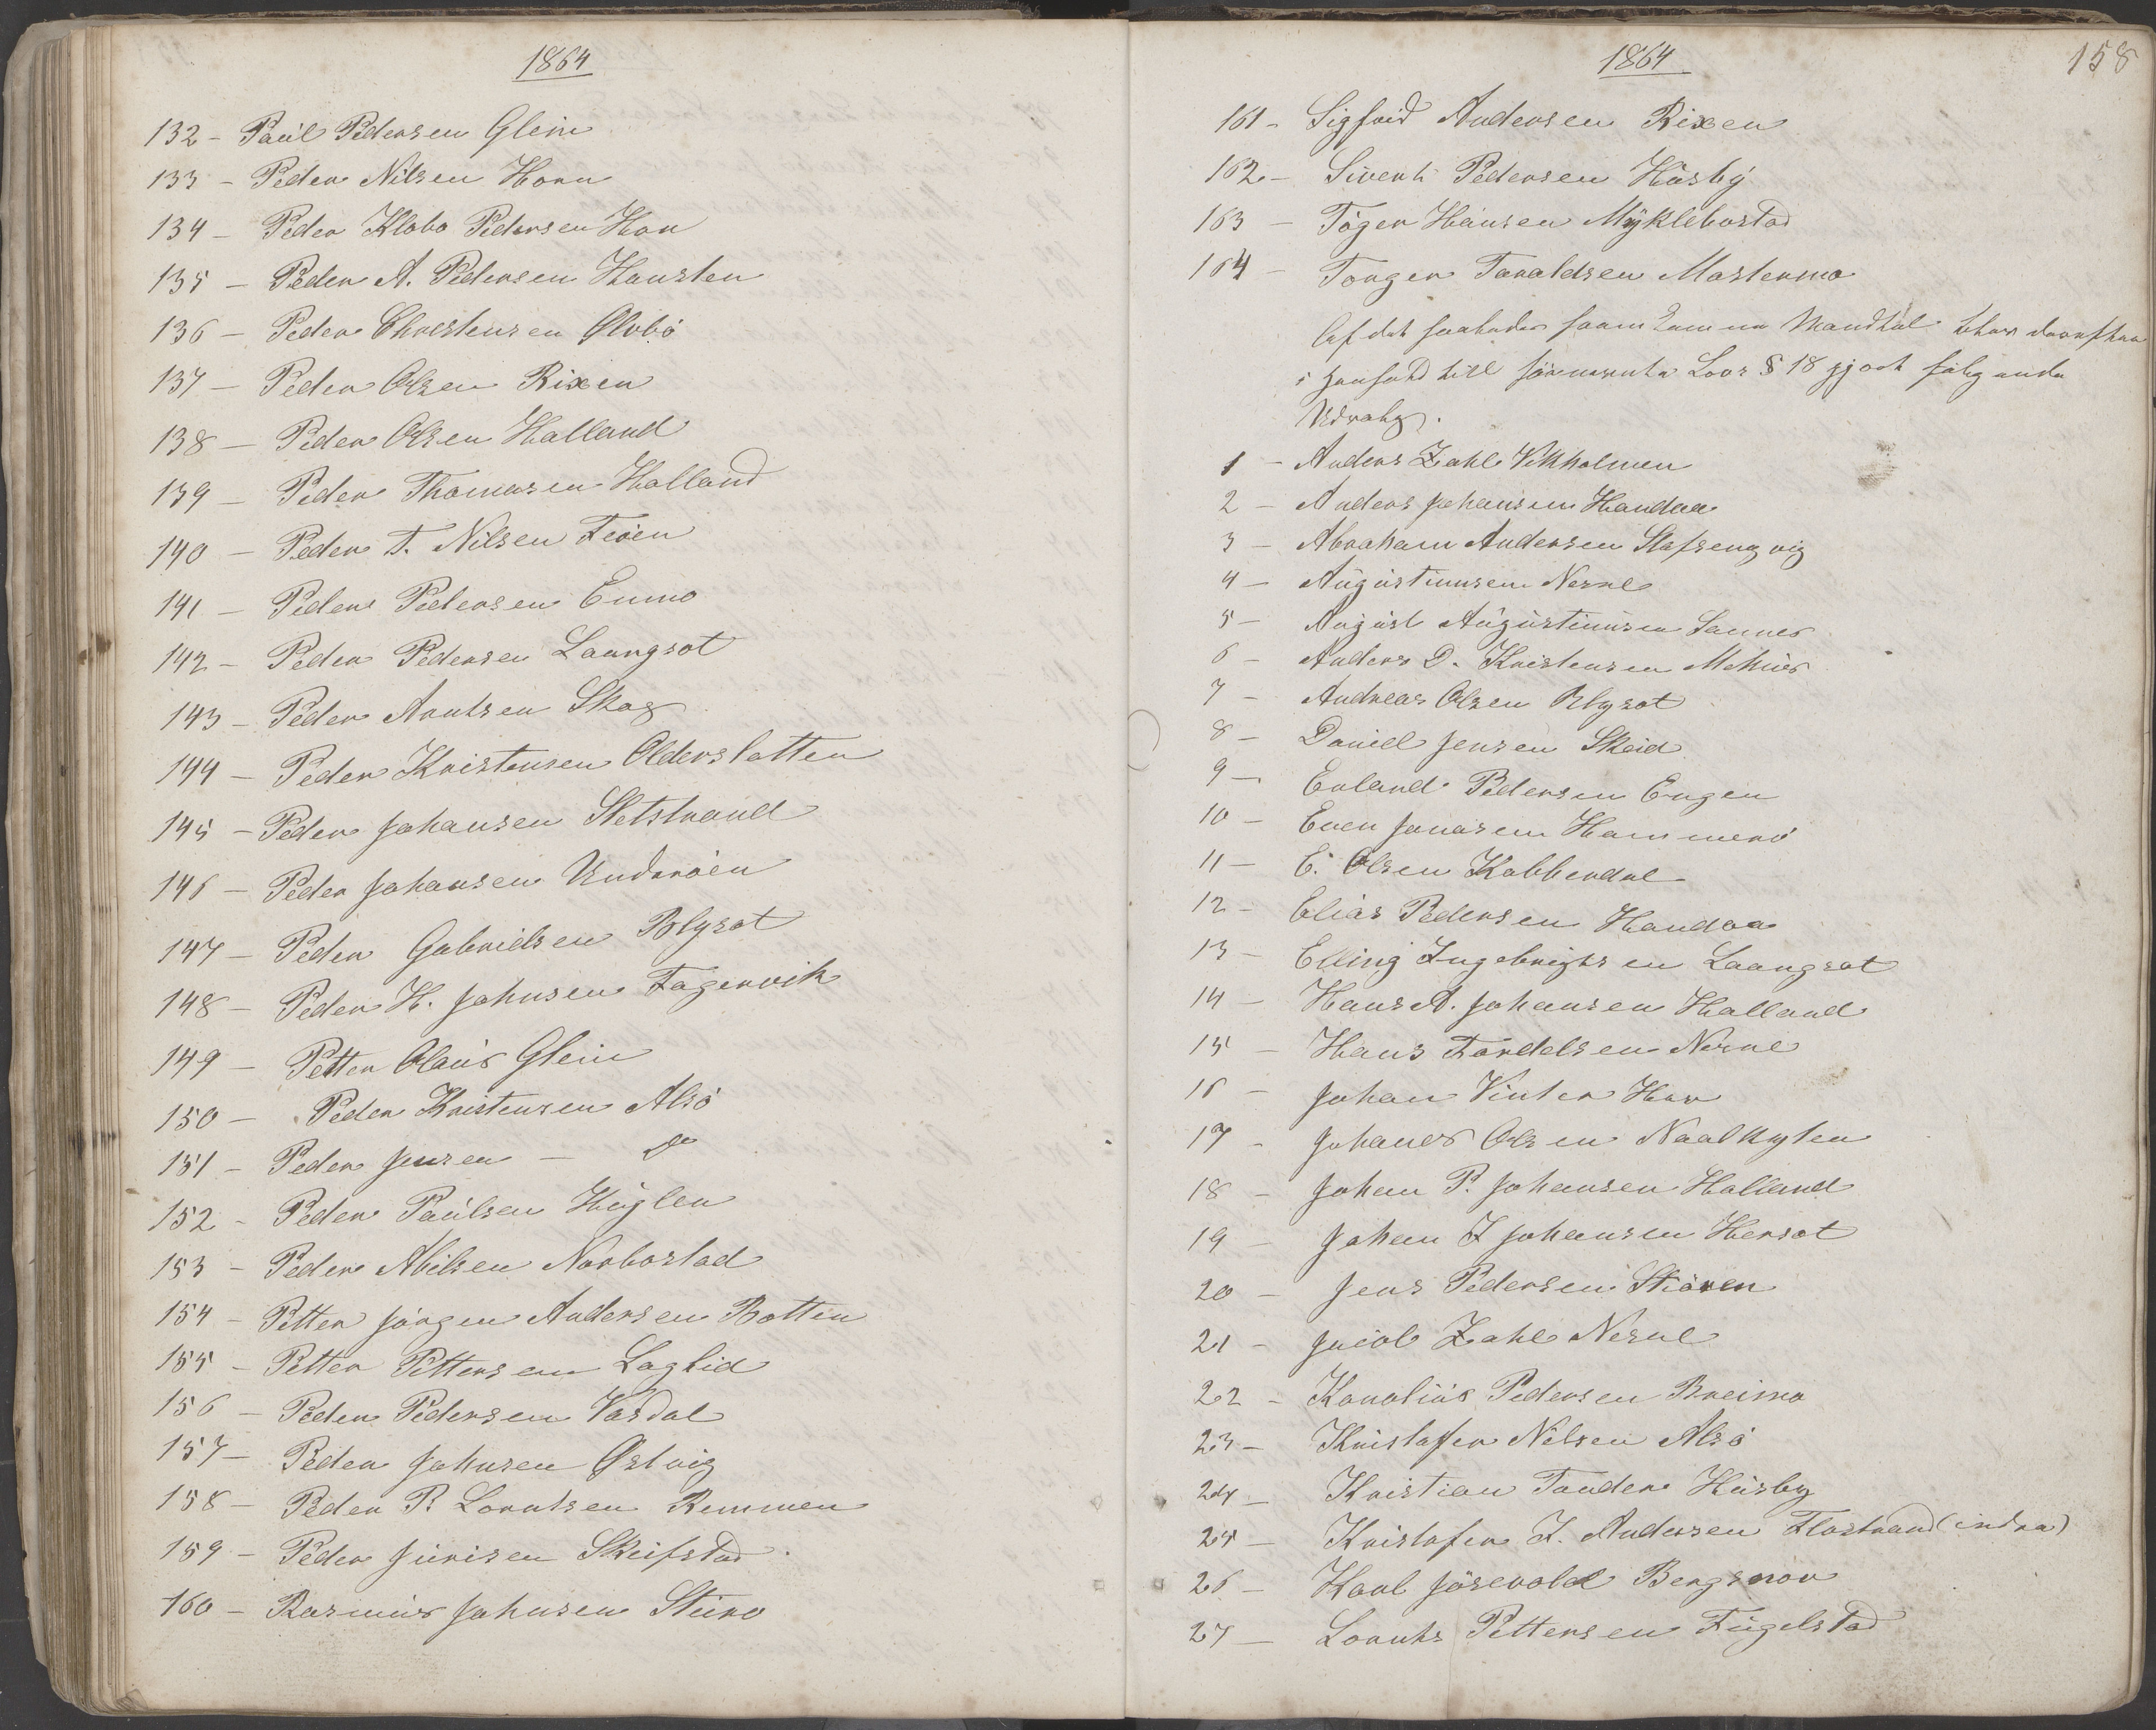 1864
132 - Paul Pedersen Glein
133 - Peder Nilsen Horn
134 - Peder Klobo Pedersen Hov
135 - Peder A. Pedersen Hausten
136 - Peder Christensen Olvbö
137 - Peder Olsen Rixen
138 - Peder Olsen Halland
139 - Peder Thomasen Halland
140 - Peder T. Nilsen Feöen
141 - Peder Pedersen Enmo
142 - Peder Pedersen Laangsot
143 - Peder Arntsen Skog
144 - Peder Kristensen Olderslatten
145 - Peder Johansen Sletstrand
146 - Peder Johansen Underöen
147 - Peder Gabrielsen Blysot
148 - Peder H. Johnsen Fagervik
149 - Petter Olaus Glein
150 - Peder Kristensen Alsö
151 - Peder Jensen - do
152 - Peder Paulsen Kuglen
153 - Peder Abilsen Norbostad
154 - Petter Jörgen Andersen Botten
155 - Petter Pettersen Laglid
156 - Peder Pedersen Vasdal
157 - Peder Johnsen Østvig
158 - Peder P. Lorntsen Remmen
159 - Peder Jurisen Skeifstad
160 - Rasmus Johnsen Sturo
1864
158
161 - Sigfrid Andersen Rixen
162 - Sivert Pedersen Husby
163 - Töger Hansen Myklebostad
164 - Torger Taraldsen Mastermo
Af det saaledes Mandtal
till Lovs § 18 gjort
Udvalg.
1 - Anders Zahl Vikholmen
2 - Anders Johansen Handaa
3 - Abraham Andersen Slafsengvig
4 - Augustinusen Nesne
5 - August Augustinusen Sannes
6 - Anders D. Kristensen Mehus
7 - Andreas Olsen Blysot
8 - Daniel Jensen Skeid
9 - Erland Pedersen Engen
10 - Even Jonasen Hammerö
11 - E. Olsen Kobberdal
12 - Elias Pedersen Handaa
13 - Elling Ingebrigtsen Laangsot
14 - Hans A. Johansen Halland
15 - Hans Tordelsen Nesne
16 - Johan Vinter Hov
17 - Johanes Olsen Naalkylen
18 - Johan P. Johansen Halland
19 - Johan I Johansen Hensot
20 - Jens Pedersen Stiören
21 - Jacob Zahl Nesne
22 - Karolius Pedersen Breimo
23 - Kristofer Nilsen Alsö
24 - Kristian Tander Husby
25 - Kristofer I. Andersen Flostrand (indra)
26 - Karl Jösevold Bergsnov
27 - Lornts Pettersen Fugelstad